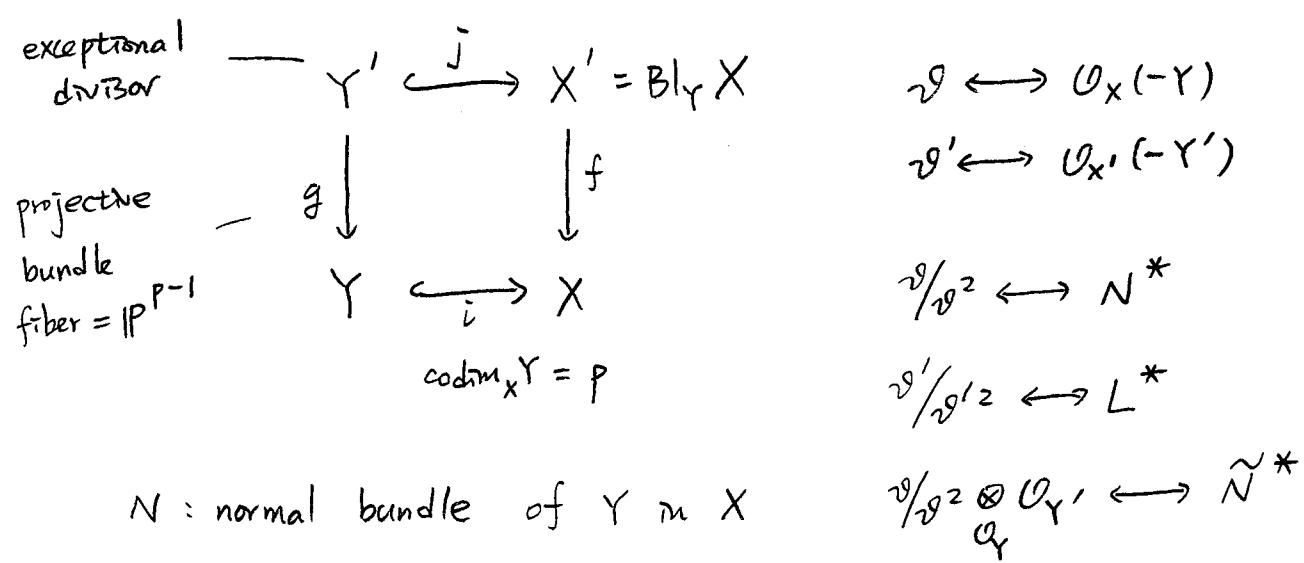 exceptional divisor — Y' ↪ X' = Bl_Y X
j
g
f
projective bundle fiber = ℙ^{p-1} —
Y ↪ X
i
codim_X Y = p
N : normal bundle of Y in X
𝒥 ⟷ 𝒪_X(-Y)
𝒥' ⟷ 𝒪_{X'}(-Y')
𝒥/𝒥² ⟷ N*
𝒥'/𝒥'² ⟷ L*
𝒥/𝒥² ⊗_{𝒪_Y} 𝒪_{Y'} ⟷ Ñ*